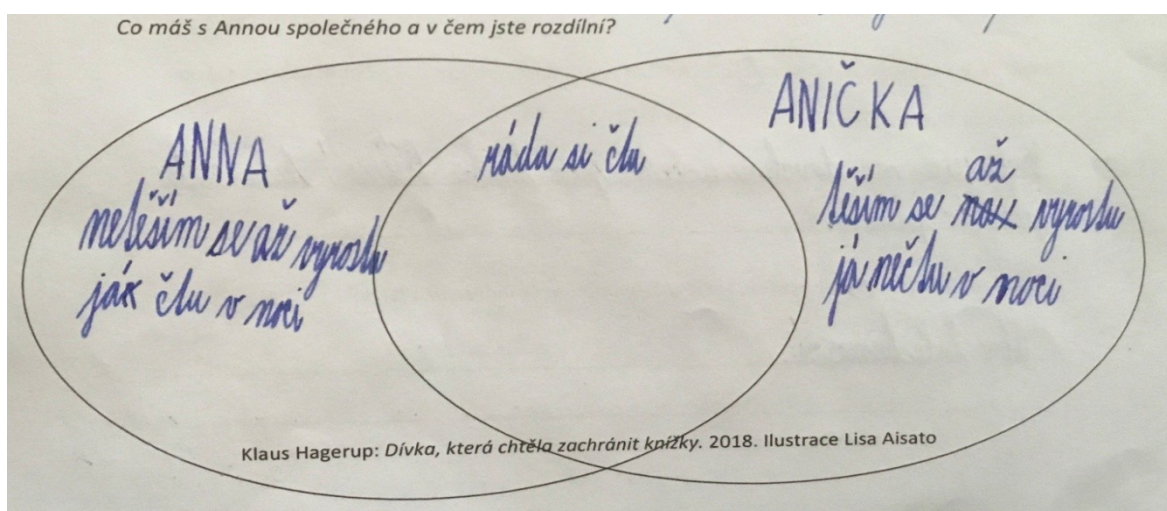 Co máš s Annou společného a v čem jste rozdílní?
ANNA
netěším se až vyrostu
já čtu v noci
ráda si čtu
ANIČKA
až
těším se vyrostu
já nečtu v noci
Klaus Hagerup: Dívka, která chtěla zachránit knížky. 2018. Ilustrace Lisa Aisato